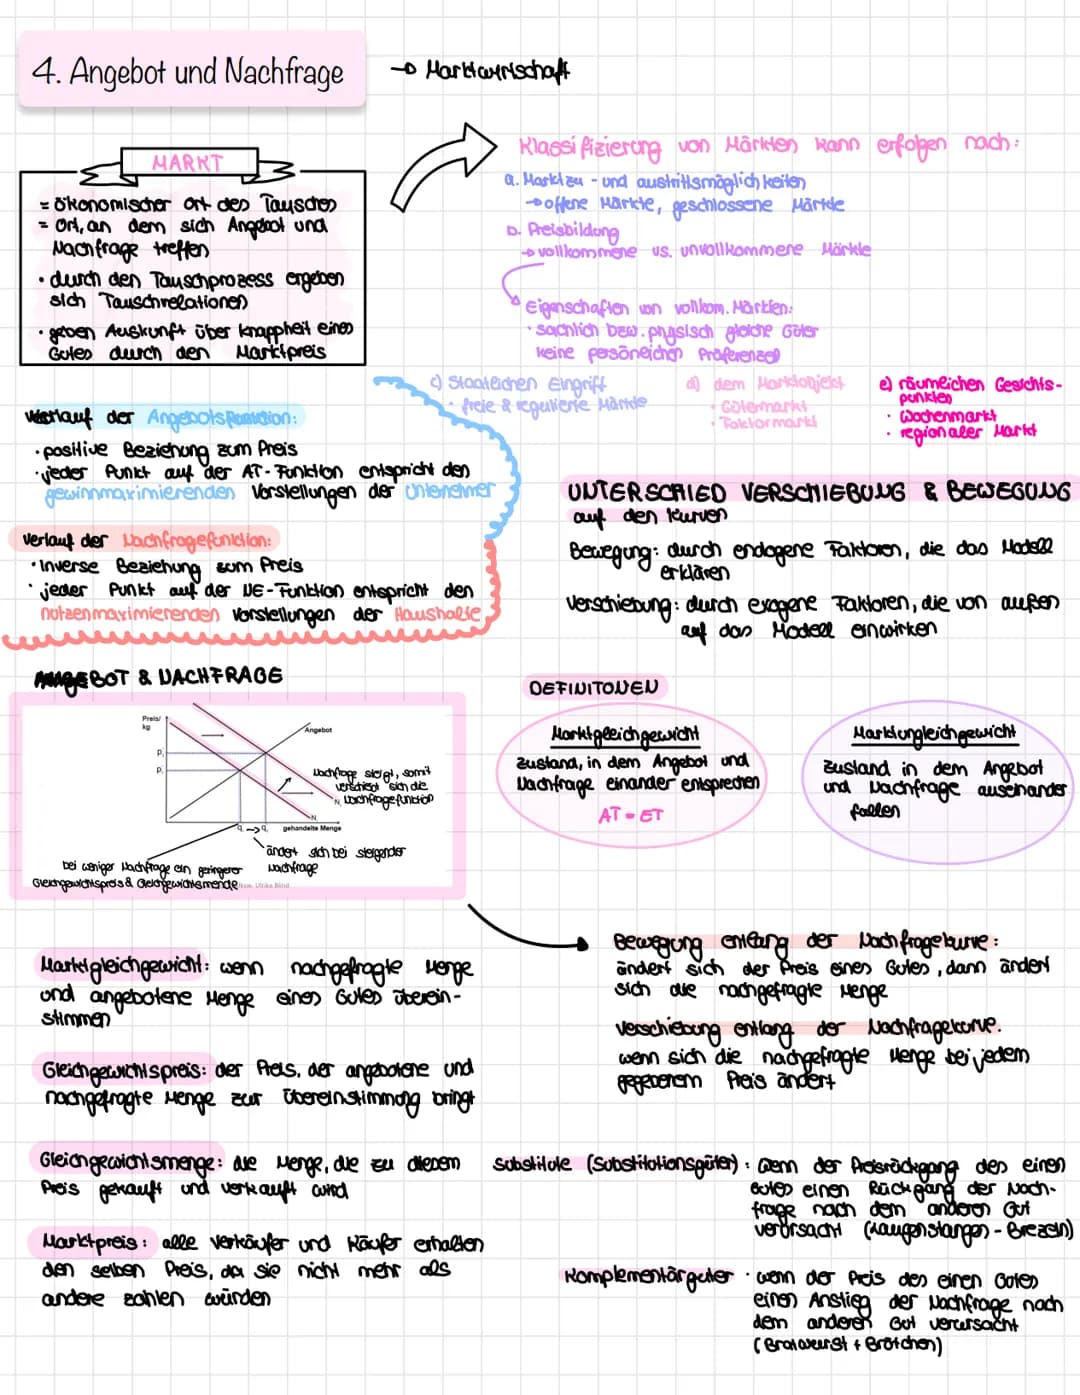 4. Angebot und Nachfrage → Marktwirtschaft
MARKT
= ökonomischer Ort des Tausches
= Ort, an dem sich Angebot und
Nachfrage treffen
• durch den Tauschprozess ergeben
sich Tauschrelationen
• geben Auskunft über Knappheit eines
Gutes durch den Marktpreis
Klassifizierung von Märkten kann erfolgen nach:
a. Marktzu- und austrittsmöglichkeiten
→ offene Märkte, geschlossene Märkte
b. Preisbildung
→ vollkommene vs. unvollkommene Märkte
Eigenschaften von vollkom. Märkten:
• sachlich bzw. physisch gleiche Güter
keine persöneichen Präferenzen
c) Staatlichen Eingriff
• freie & regulierte Märkte
d) dem Marktobjekt
• Gütermarkt
• Faktormarkt
e) räumlichen Gesichts-
punkten
• Wochenmarkt
• regionaler Markt
Verlauf der Angebotsfunktion:
• positive Beziehung zum Preis
• jeder Punkt auf der AT-Funktion entspricht den
gewinnmaximierenden Vorstellungen der Unternehmer
Verlauf der Nachfragefunktion:
• Inverse Beziehung zum Preis
• jeder Punkt auf der NE-Funktion entspricht den
nutzenmaximierenden Vorstellungen der Haushalte
UNTERSCHIED VERSCHIEBUNG & BEWEGUNG
auf den Kurven
Bewegung: durch endogene Faktoren, die das Modell
erklären
Verschiebung: durch exogene Faktoren, die von außen
auf das Modell einwirken
ANGEBOT & NACHFRAGE
Preis/
kg
Angebot
P,
P,
Nachfrage steigt, somit
verschiebt sich die
Nachfragefunktion
N,
N,
q, → q, gehandelte Menge
ändert sich bei steigender
Nachfrage
bei weniger Nachfrage ein geringerer
Gleichgewichtspreis & Gleichgewichtsmenge
Ulrike Bind
DEFINITONEN
Marktgleichgewicht
Zustand, in dem Angebot und
Nachfrage einander entsprechen
AT = ET
Marktungleichgewicht
Zustand in dem Angebot
und Nachfrage auseinander
fallen
Marktgleichgewicht: wenn nachgefragte Menge
und angebotene Menge eines Gutes überein-
stimmen
Gleichgewichtspreis: der Preis, der angebotene und
nachgefragte Menge zur Übereinstimmung bringt
Gleichgewichtsmenge: die Menge, die zu diesem
Preis gekauft und verkauft wird
Marktpreis: alle Verkäufer und Käufer erhalten
den selben Preis, da sie nicht mehr als
andere zahlen würden
Bewegung entlang der Nachfragekurve:
ändert sich der Preis eines Gutes, dann ändert
sich die nachgefragte Menge
Verschiebung entlang der Nachfragekurve.
wenn sich die nachgefragte Menge bei jedem
gegebenem Preis ändert
Substitute (Substitutionsgüter): wenn der Preisrückgang des einen
Gutes einen Rückgang der Nach-
frage nach dem anderen Gut
verursacht (Laugenstangen - Brezeln)
Komplementärgüter • wenn der Preis des einen Gutes
einen Anstieg der Nachfrage nach
dem anderen Gut verursacht
(Bratwurst + Brötchen)